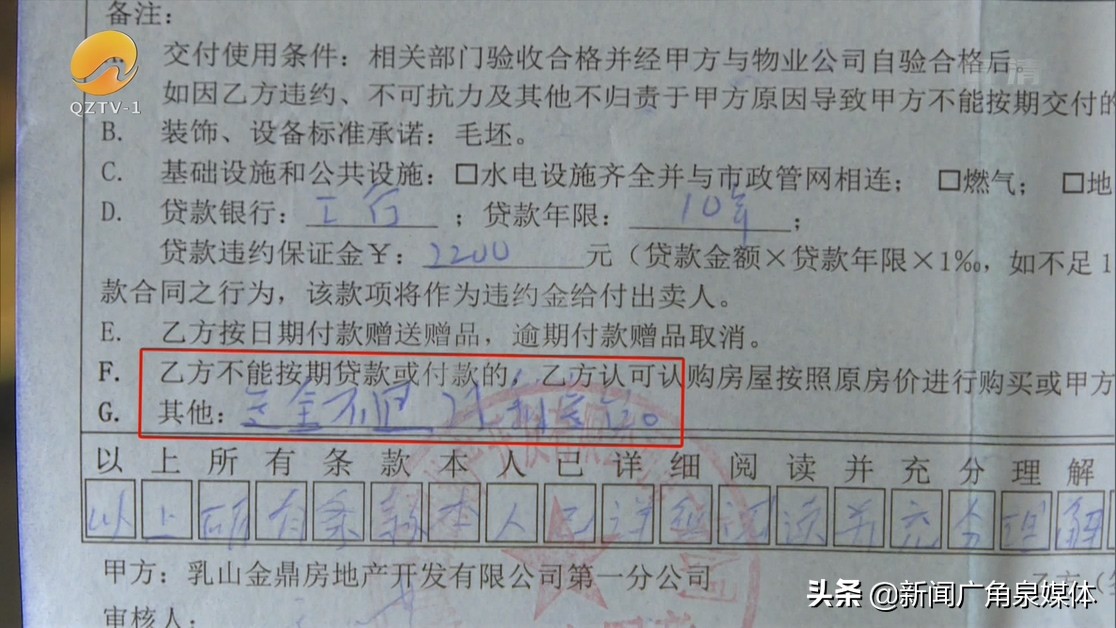 备注：
交付使用条件：相关部门验收合格并经甲方与物业公司自验合格后。
如因乙方违约、不可抗力及其他不归责于甲方原因导致甲方不能按期交付的
QZTV-1
B. 装饰、设备标准承诺：毛坯。
C. 基础设施和公共设施：□水电设施齐全并与市政管网相连； □燃气； □地
D. 贷款银行：工行；贷款年限：10年；
贷款违约保证金￥：2200元（贷款金额×贷款年限×1‰，如不足1
款合同之行为，该款项将作为违约金给付出卖人。
E. 乙方按日期付款赠送赠品，逾期付款赠品取消。
F. 乙方不能按期贷款或付款的，乙方认可认购房屋按照原房价进行购买或甲方
G. 其他：定金不退
以上所有条款本人已详细阅读并充分理解
以上所有条款本人已详细阅读并充分理解
甲方：乳山金鼎房地产开发有限公司第一分公司
乙方（
审核人：
头条 @新闻广角泉媒体